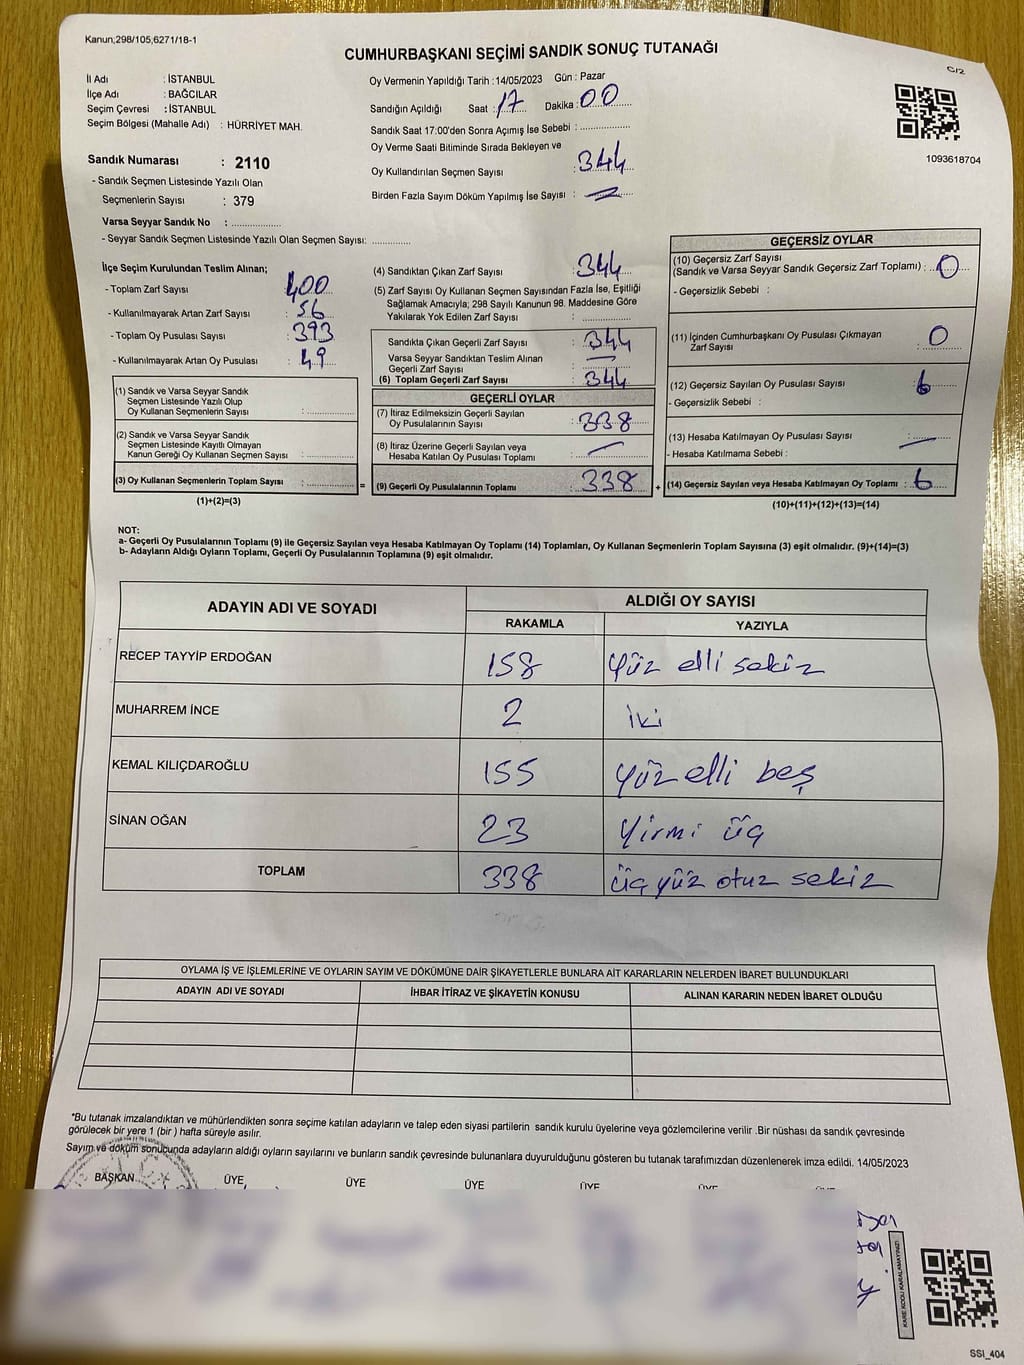 Kanun;298/105;6271/18-1
CUMHURBAŞKANI SEÇİMİ SANDIK SONUÇ TUTANAĞI
C/2
İl Adı : İSTANBUL
İlçe Adı : BAĞCILAR
Seçim Çevresi : İSTANBUL
Seçim Bölgesi (Mahalle Adı) : HÜRRİYET MAH.
Sandık Numarası : 2110
- Sandık Seçmen Listesinde Yazılı Olan
Seçmenlerin Sayısı : 379
Varsa Seyyar Sandık No : ..............
- Seyyar Sandık Seçmen Listesinde Yazılı Olan Seçmen Sayısı: ............
Oy Vermenin Yapıldığı Tarih : 14/05/2023 Gün : Pazar
Sandığın Açıldığı Saat : 17 Dakika : 00
Sandık Saat 17:00'den Sonra Açımış İse Sebebi : ................
Oy Verme Saati Bitiminde Sırada Bekleyen ve
Oy Kullandırılan Seçmen Sayısı : 344
Birden Fazla Sayım Döküm Yapılmış İse Sayısı :
1093618704
İlçe Seçim Kurulundan Teslim Alınan;
- Toplam Zarf Sayısı : 400
- Kullanılmayarak Artan Zarf Sayısı : 56
- Toplam Oy Pusulası Sayısı : 393
- Kullanılmayarak Artan Oy Pusulası : 49
(1) Sandık ve Varsa Seyyar Sandık
Seçmen Listesinde Yazılı Olup
Oy Kullanan Seçmenlerin Sayısı : ..............
(2) Sandık ve Varsa Seyyar Sandık
Seçmen Listesinde Kayıtlı Olmayan
Kanun Gereği Oy Kullanan Seçmen Sayısı : ..............
(3) Oy Kullanan Seçmenlerin Toplam Sayısı : .............. =
(1)+(2)=(3)
(4) Sandıktan Çıkan Zarf Sayısı : 344
(5) Zarf Sayısı Oy Kullanan Seçmen Sayısından Fazla İse, Eşitliği
Sağlamak Amacıyla; 298 Sayılı Kanunun 98. Maddesine Göre
Yakılarak Yok Edilen Zarf Sayısı : ..............
Sandıkta Çıkan Geçerli Zarf Sayısı : 344
Varsa Seyyar Sandıktan Teslim Alınan
Geçerli Zarf Sayısı : —
(6) Toplam Geçerli Zarf Sayısı : 344
GEÇERLİ OYLAR
(7) İtiraz Edilmeksizin Geçerli Sayılan
Oy Pusulalarının Sayısı : 338
(8) İtiraz Üzerine Geçerli Sayılan veya
Hesaba Katılan Oy Pusulası Toplamı : —
(9) Geçerli Oy Pusulalarının Toplamı : 338 +
GEÇERSİZ OYLAR
(10) Geçersiz Zarf Sayısı
(Sandık ve Varsa Seyyar Sandık Geçersiz Zarf Toplamı) : 0
- Geçersizlik Sebebi :
(11) İçinden Cumhurbaşkanı Oy Pusulası Çıkmayan
Zarf Sayısı : 0
(12) Geçersiz Sayılan Oy Pusulası Sayısı : 6
- Geçersizlik Sebebi :
(13) Hesaba Katılmayan Oy Pusulası Sayısı : —
- Hesaba Katılmama Sebebi :
(14) Geçersiz Sayılan veya Hesaba Katılmayan Oy Toplamı : 6
(10)+(11)+(12)+(13)=(14)
NOT:
a- Geçerli Oy Pusulalarının Toplamı (9) ile Geçersiz Sayılan veya Hesaba Katılmayan Oy Toplamı (14) Toplamları, Oy Kullanan Seçmenlerin Toplam Sayısına (3) eşit olmalıdır. (9)+(14)=(3)
b- Adayların Aldığı Oyların Toplamı, Geçerli Oy Pusulalarının Toplamına (9) eşit olmalıdır.
ADAYIN ADI VE SOYADI ALDIĞI OY SAYISI
RAKAMLA YAZIYLA
RECEP TAYYİP ERDOĞAN 158 Yüz elli sekiz
MUHARREM İNCE 2 iki
KEMAL KILIÇDAROĞLU 155 Yüz elli beş
SİNAN OĞAN 23 Yirmi üç
TOPLAM 338 üç yüz otuz sekiz
OYLAMA İŞ VE İŞLEMLERİNE VE OYLARIN SAYIM VE DÖKÜMÜNE DAİR ŞİKAYETLERLE BUNLARA AİT KARARLARIN NELERDEN İBARET BULUNDUKLARI
ADAYIN ADI VE SOYADI İHBAR İTİRAZ VE ŞİKAYETİN KONUSU ALINAN KARARIN NEDEN İBARET OLDUĞU
*Bu tutanak imzalandıktan ve mühürlendikten sonra seçime katılan adayların ve talep eden siyasi partilerin sandık kurulu üyelerine veya gözlemcilerine verilir .Bir nüshası da sandık çevresinde
görülecek bir yere 1 (bir ) hafta süreyle asılır.
Sayım ve döküm sonucunda adayların aldığı oyların sayılarını ve bunların sandık çevresinde bulunanlara duyurulduğunu gösteren bu tutanak tarafımızdan düzenlenerek imza edildi. 14/05/2023
BAŞKAN ÜYE ÜYE ÜYE ÜYE ÜYE ÜYE
KARE KODU KARALAMAYINIZ!
SSI_404